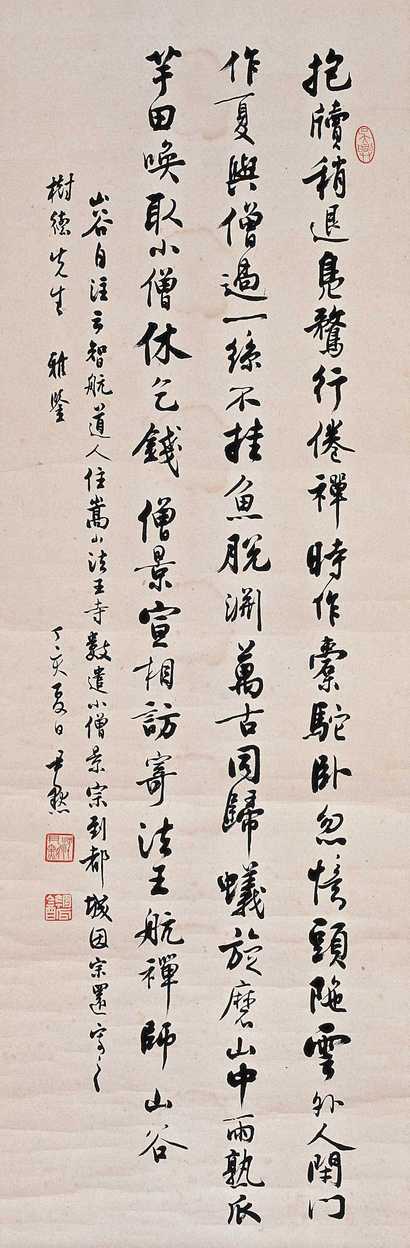 抱牘稍退鳧鶩行倦禪時作橐駝卧忽憶頭陁雲外人閉門
作夏與僧過一絲不挂魚脫淵萬古同歸蟻旋磨山中雨熟瓜
芋田喚取小僧休乞錢 僧景宣相訪寄法王航禪師 山谷
山谷自注云智航道人住嵩山法王寺數遣小僧景宗到都城因宗還寄之
樹德先生 雅鑒 丁亥夏日 尹默